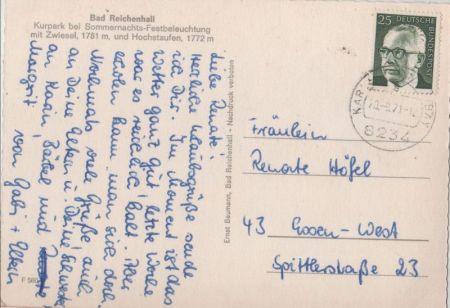 Bad Reichenhall
Kurpark bei Sommernachts-Festbeleuchtung
mit Zwiesel, 1781 m, und Hochstaufen, 1772 m
Liebe Renate!
Herzliche Urlaubsgrüße sende
ich Dir. Im Moment ist das
Wetter ganz gut, letzte Woche
war es reichlich kalt. Aber
erholen kann man sich doch.
Nochmals viele Grüße, auch
an Deine Eltern u. Deine Schwester
an Bärbel und
Margret von Gabi + Eltern
Ernst Baumann, Bad Reichenhall - Nachdruck verboten
25
DEUTSCHE
BUNDESPOST
8232
Fräulein
Renate Höfel
43 Essen-West
Spittlerstraße 23